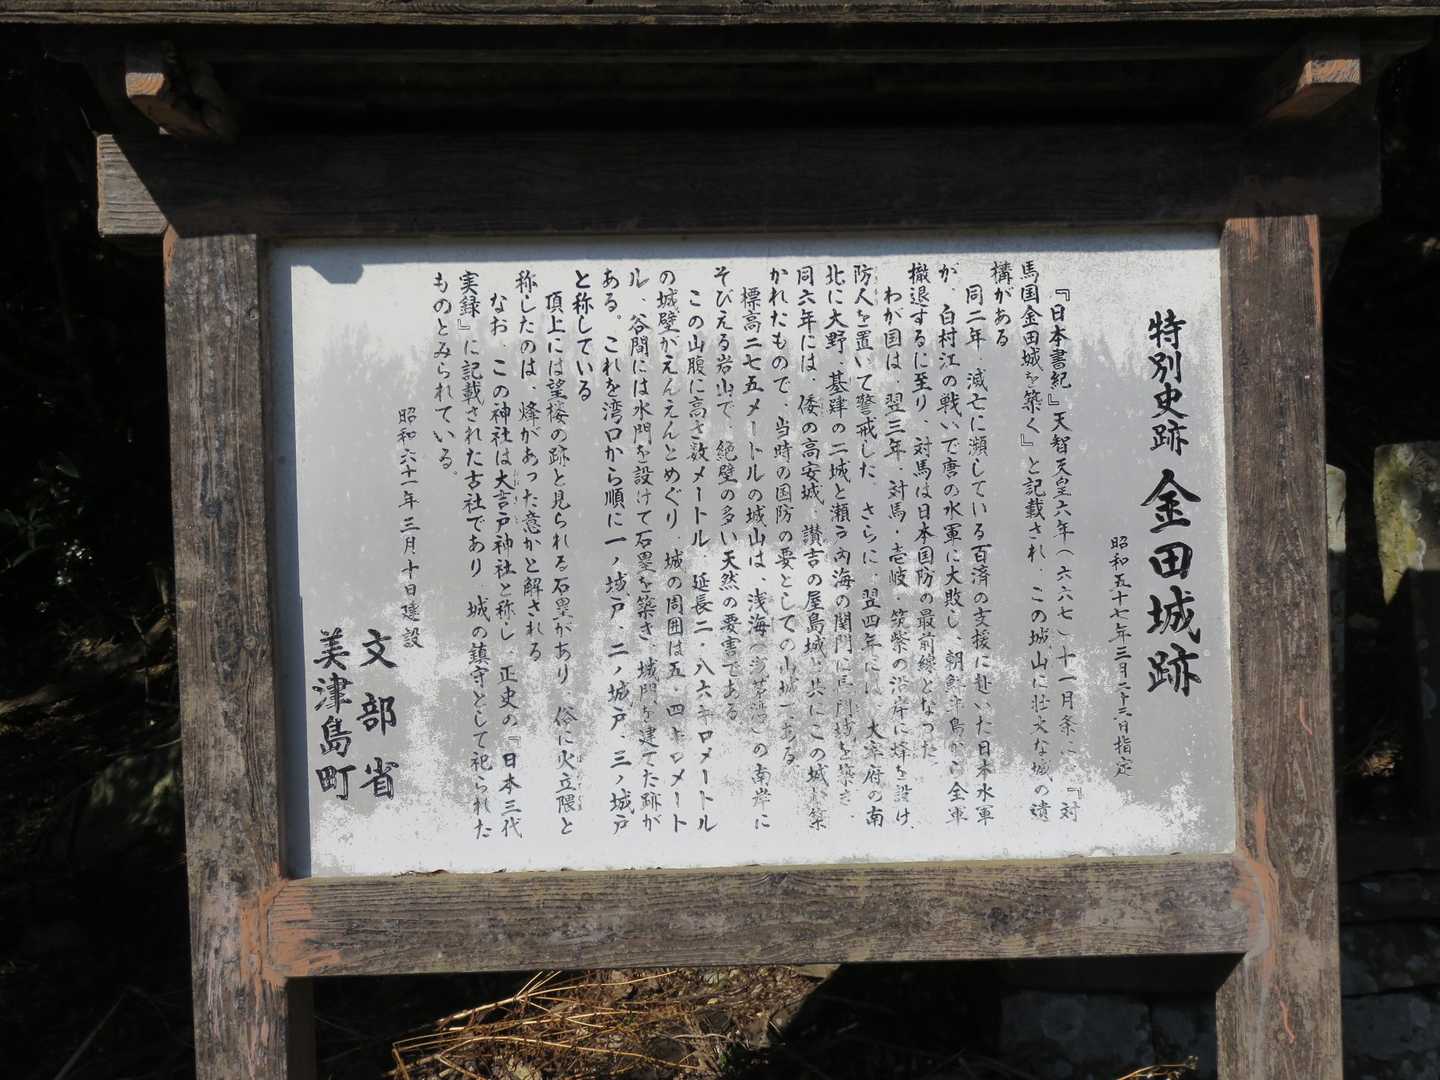 特別史跡 金田城跡
昭和五十七年三月二十三日指定
『日本書紀』天智天皇六年(六六七)十一月条に、『対
馬国金田城を築く』と記載され、この城山に壮大な城の遺
構がある
同二年、滅亡に瀕している百済の支援に赴いた日本水軍
が、白村江の戦いで唐の水軍に大敗し、朝鮮半島から全軍
撤退するに至り、対馬は日本国防の最前線となった
わが国は、翌三年、対馬・壱岐・筑紫の沿岸に烽を設け、
防人を置いて警戒した。さらに、翌四年には、大宰府の南
北に大野、基肄の二城と瀬戸内海の関門に長門城を築き、
同六年には、倭の高安城、讃吉の屋島城と共にこの城が築
かれたもので、当時の国防の要としての山城である
標高二七五メートルの城山は、浅海(浅茅湾)の南岸に
そびえる岩山で、絶壁の多い天然の要害である
この山腹に高さ数メートル、延長二・八六キロメートル
の城壁がえんえんとめぐり、城の周囲は五・四キロメート
ル、谷間には水門を設けて石塁を築き、城門を建てた跡が
ある。これを湾口から順に一ノ城戸、二ノ城戸、三ノ城戸
と称している
頂上には望楼の跡と見られる石塁があり、俗に火立隈と
称したのは、烽があった意かと解される
なお、この神社は大吉戸神社と称し、正史の『日本三代
実録』に記載された古社であり、城の鎮守として祀られた
ものとみられている。
昭和六十一年三月十日建設
文部省
美津島町